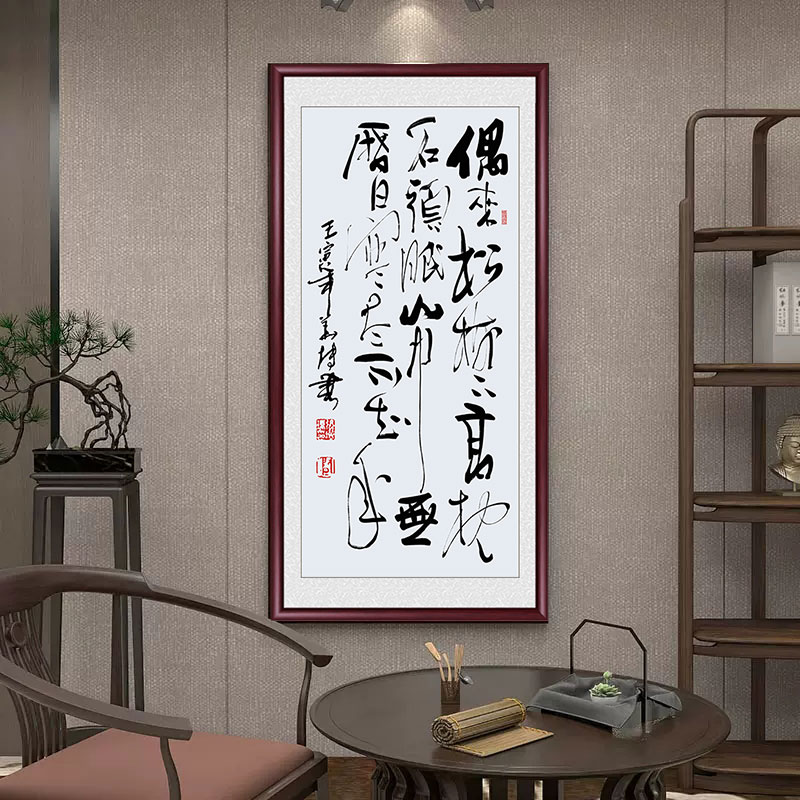 偶来松樹下高枕
石頭眠山中無
曆日寒盡不知年
壬寅年書